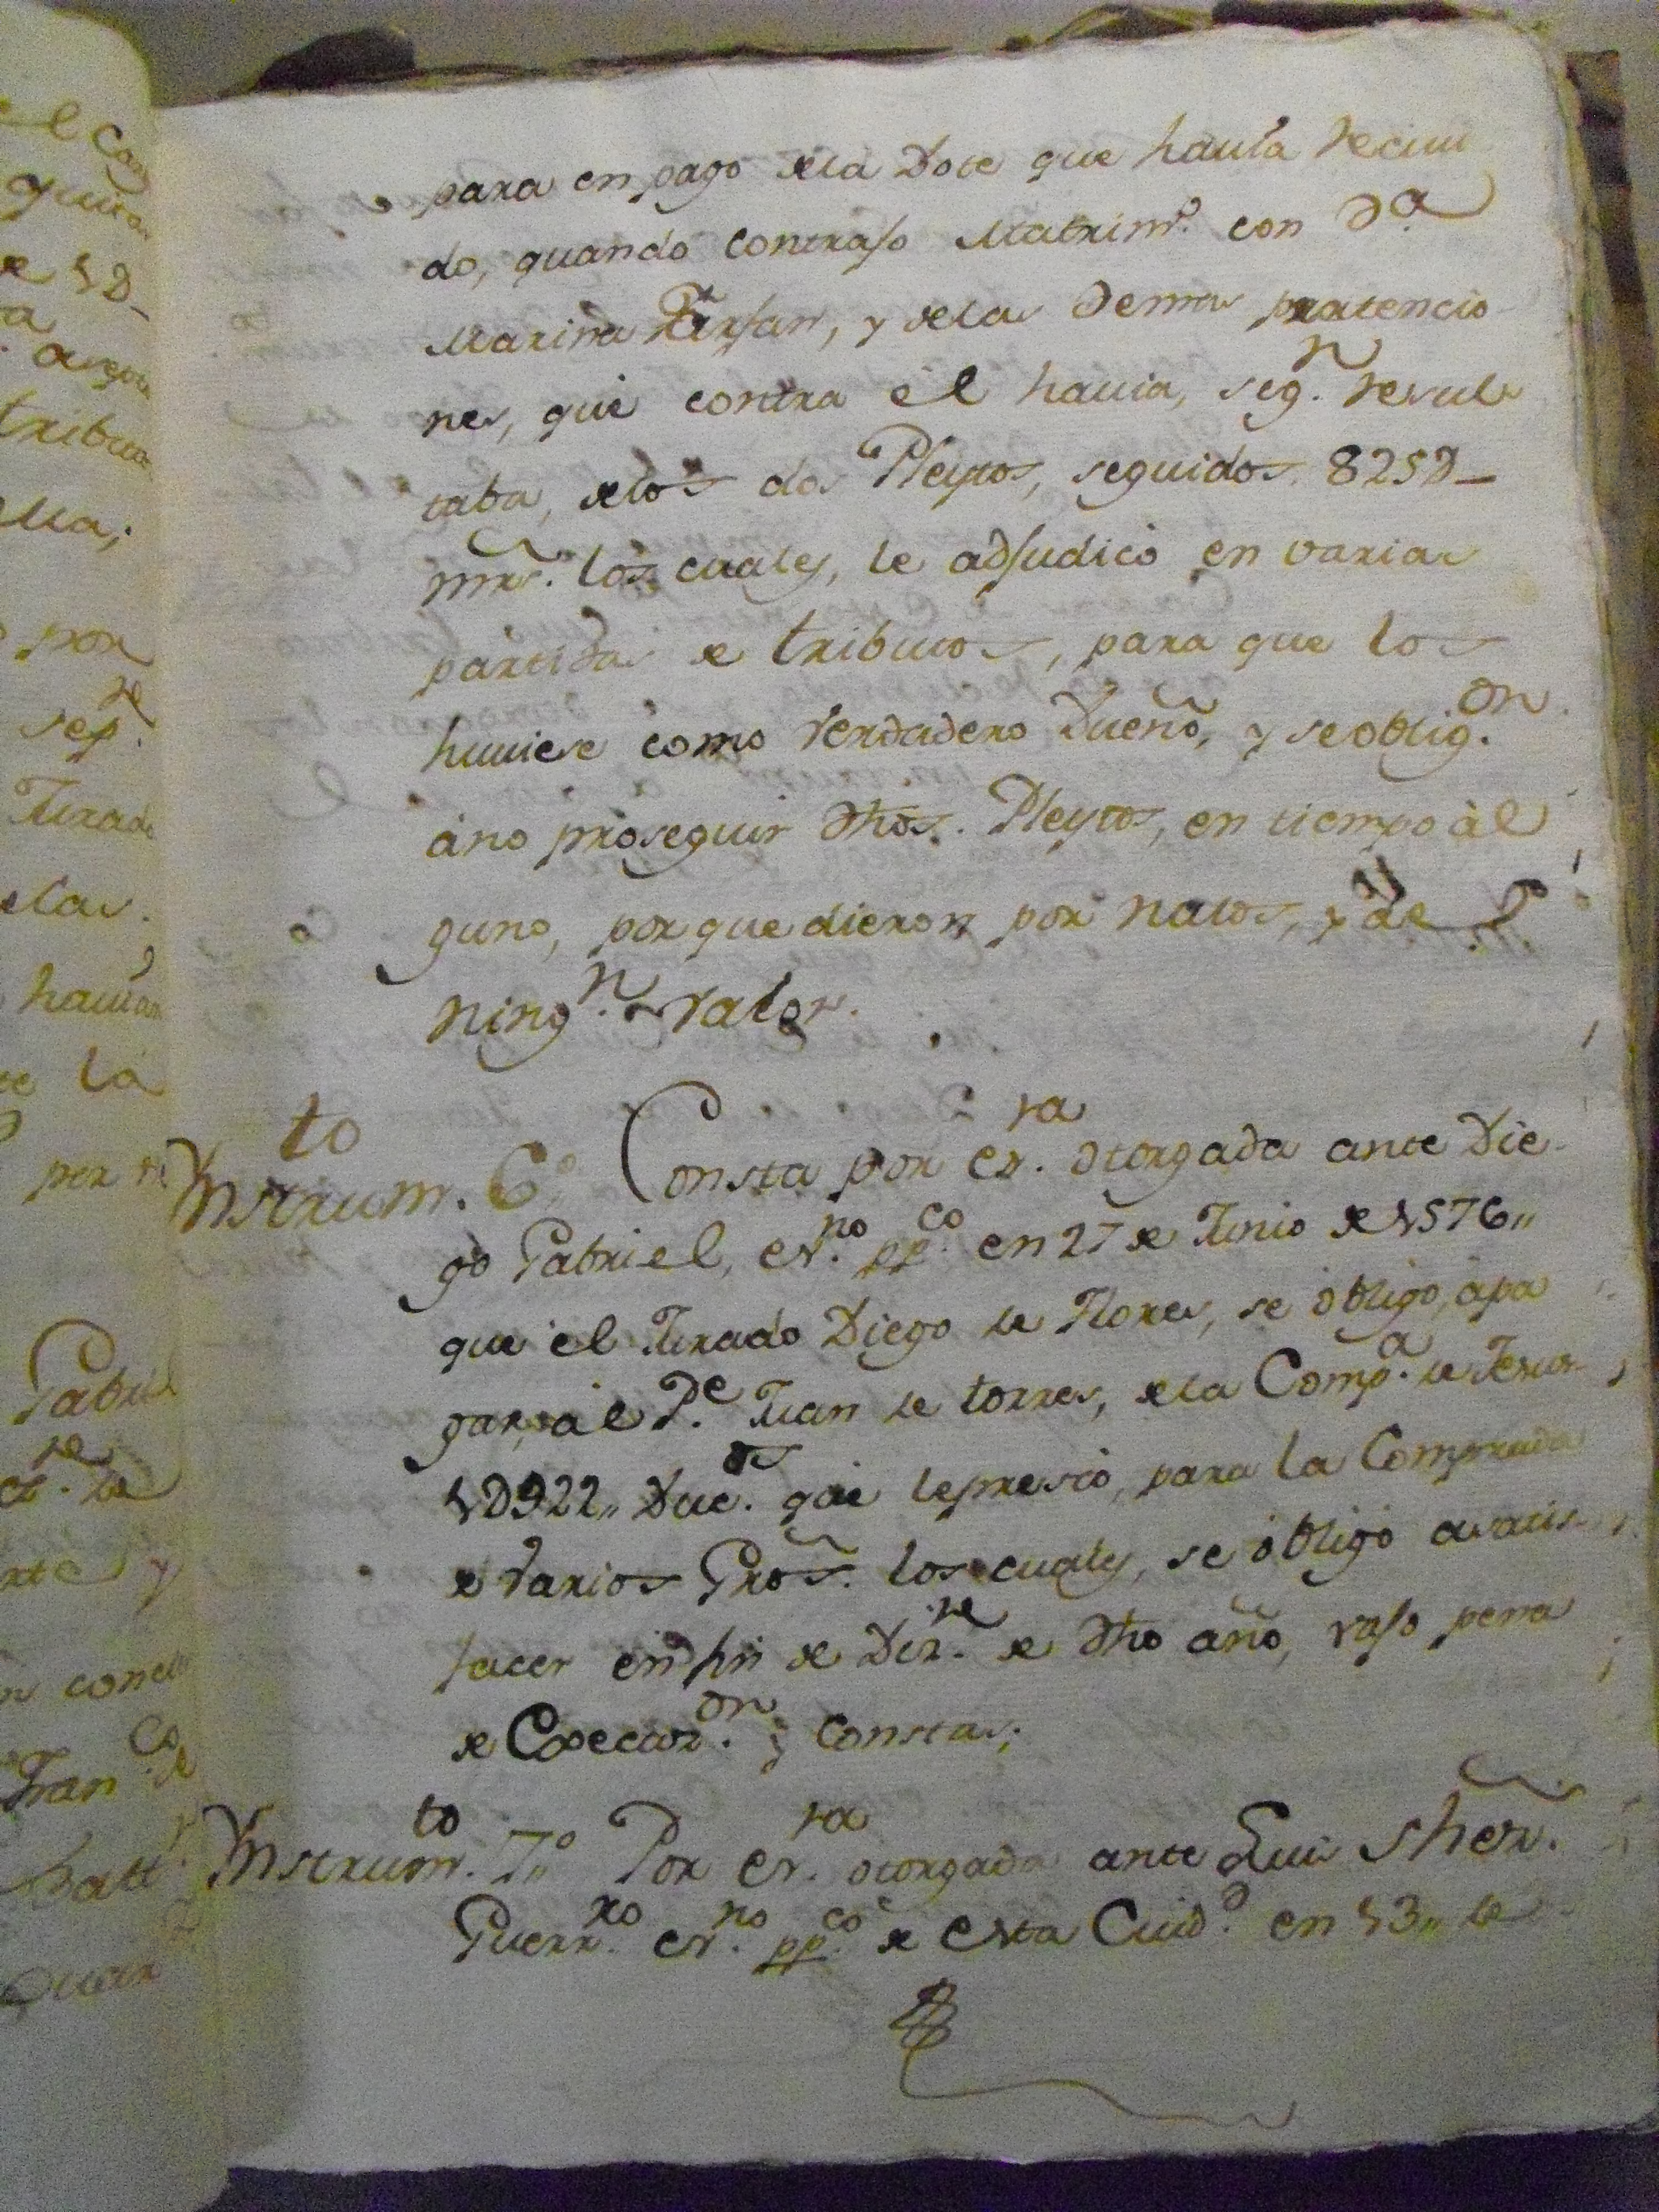 para en pago de la Dote que hauia reciui
do, quando contrajo Matrim.o con D.a
Marina Farfan, y de las Demas pretencio
nes, que contra èl hauia, seg.n resul
taba, de los dos Pleytos, seguidos 825D_
mrs. los cuales, le adjudicò en varias
partidas de tributos, para que los
huuiese como Verdadero Dueño, y se oblig.on
àno proseguir dhos. Pleytos, en tiempo àl
guno, porque dieron por nulos, y de
ning.n valor.
Ynstrum.to 6.o Consta por es.ra otorgada ante Die
go Gabriel, es.no pp.co en 27 de Junio de 1576,,
que el Jurado Diego de Flores, se òbligo, àpa
gar, àl P.e Juan de torres, de la Comp.a de Jesus
1D922,, Duc.os que le prestò, para la Comprada
de varios Gros. los cuales, se òbligò asatis
facer en fin de Diz.re de dho año, vajo pena
de Execuz.on y Costas;
Ynstrum.to 7.o Por es.ra otorgada ante Luis Fhern.
Guerr.ro es.no pp.co de esta Ciud.d en 13,, de